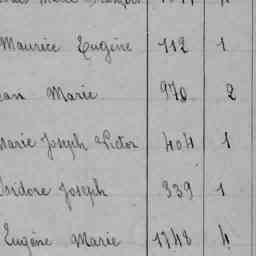 Maurice Eugène 112 1
Marie 970 2
Marie Joseph Victor 404 1
Isidore Joseph 339 1
Eugène Marie 1748 4